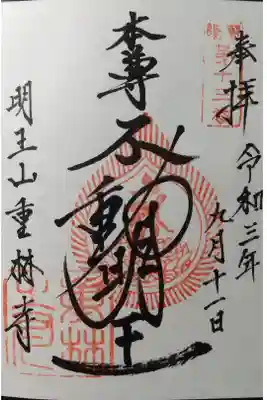 奉拝
令和三年
九月十一日
本尊
不動明王
明王山重林寺